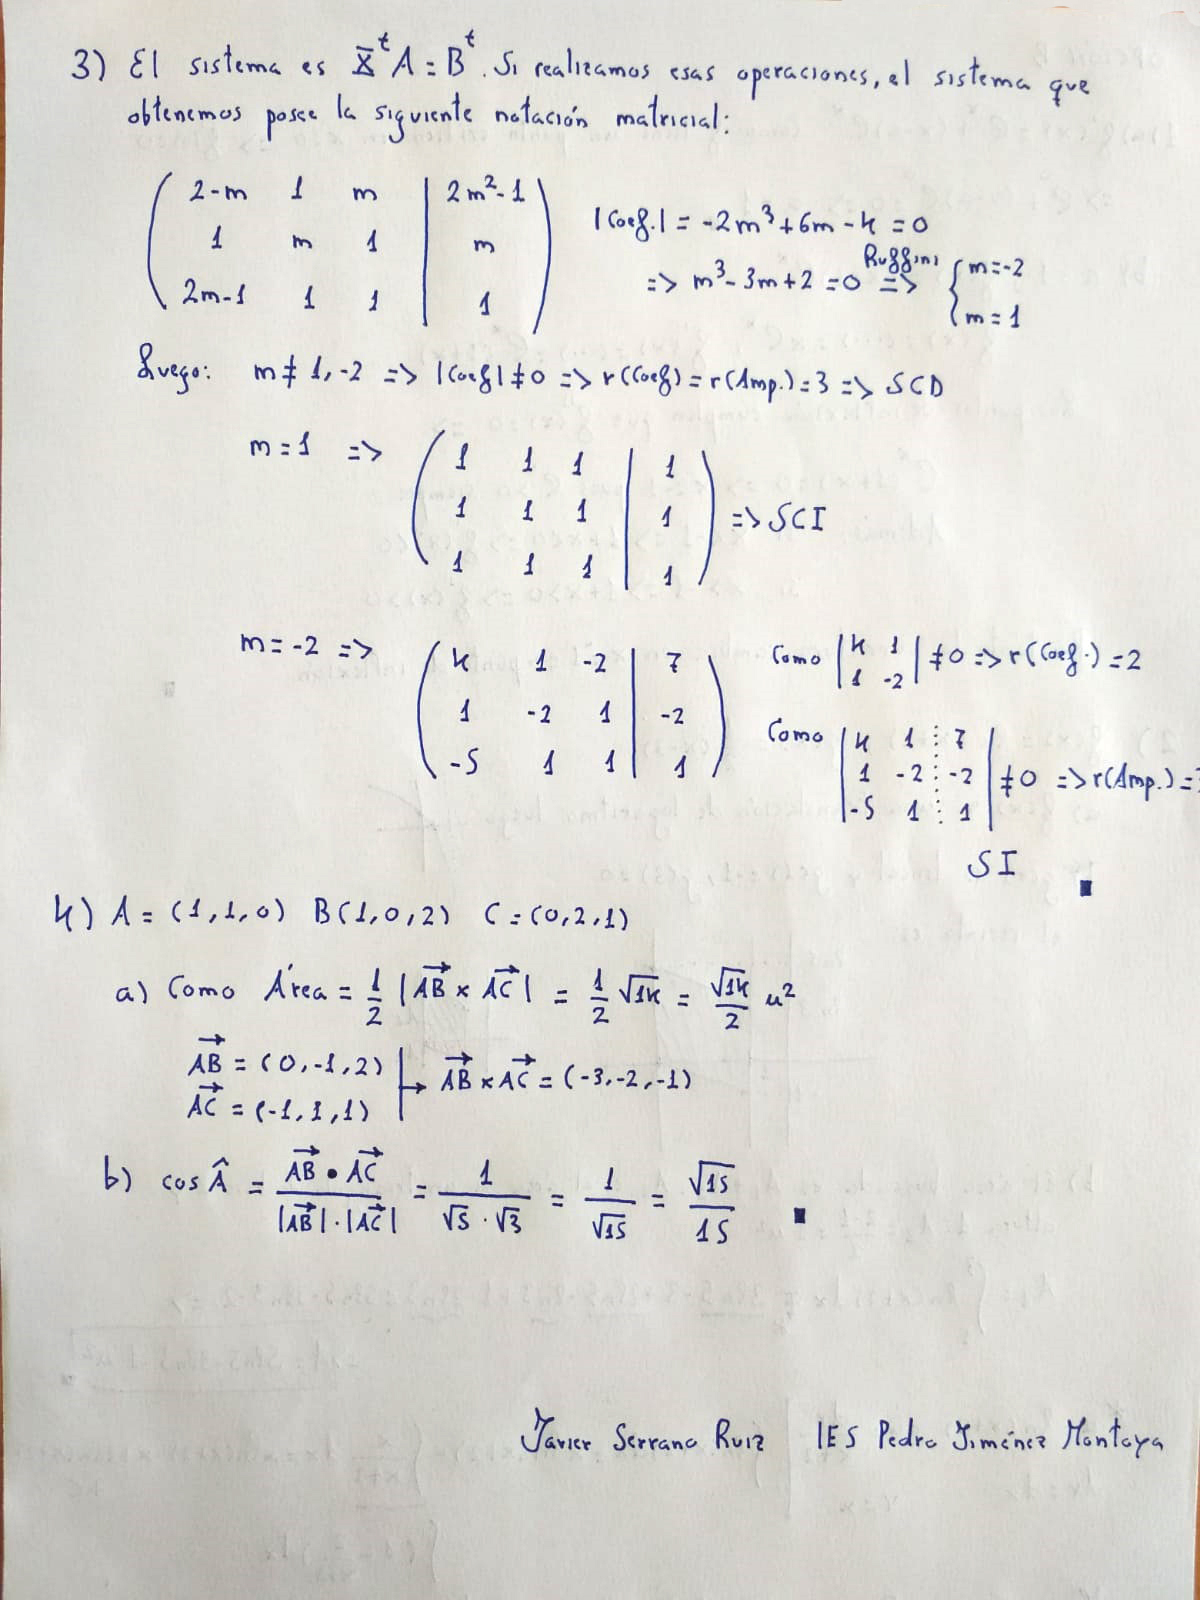 3) El sistema es X^t A = B^t. Si realizamos esas operaciones, el sistema que
obtenemos posee la siguiente notación matricial:
( 2-m 1 m | 2m²-1 )
( 1 m 1 | m )
( 2m-1 1 1 | 1 )
|Coef.| = -2m³+6m-4 = 0
=> m³-3m+2 = 0 Ruffini => { m=-2
m=1
Luego: m ≠ 1, -2 => |Coef| ≠ 0 => r(Coef) = r(Amp.) = 3 => SCD
m = 1 => ( 1 1 1 | 1 )
( 1 1 1 | 1 ) => SCI
( 1 1 1 | 1 )
m = -2 => ( 4 1 -2 | 7 )
( 1 -2 1 | -2 )
( -5 1 1 | 1 )
Como | 4 1 |
| 1 -2 | ≠ 0 => r(Coef.) = 2
Como | 4 1 ⋮ 7 |
| 1 -2 ⋮ -2 | ≠ 0 => r(Amp.) =
| -5 1 ⋮ 1 |
SI ■
4) A = (1,1,0) B(1,0,2) C = (0,2,1)
a) Como Área = 1/2 |AB × AC| = 1/2 √14 = √14/2 u²
AB = (0,-1,2)
AC = (-1,1,1) → AB × AC = (-3,-2,-1)
b) cos Â = AB • AC / |AB| · |AC| = 1/(√5 · √3) = 1/√15 = √15/15 ■
Javier Serrano Ruiz IES Pedro Jiménez Montoya